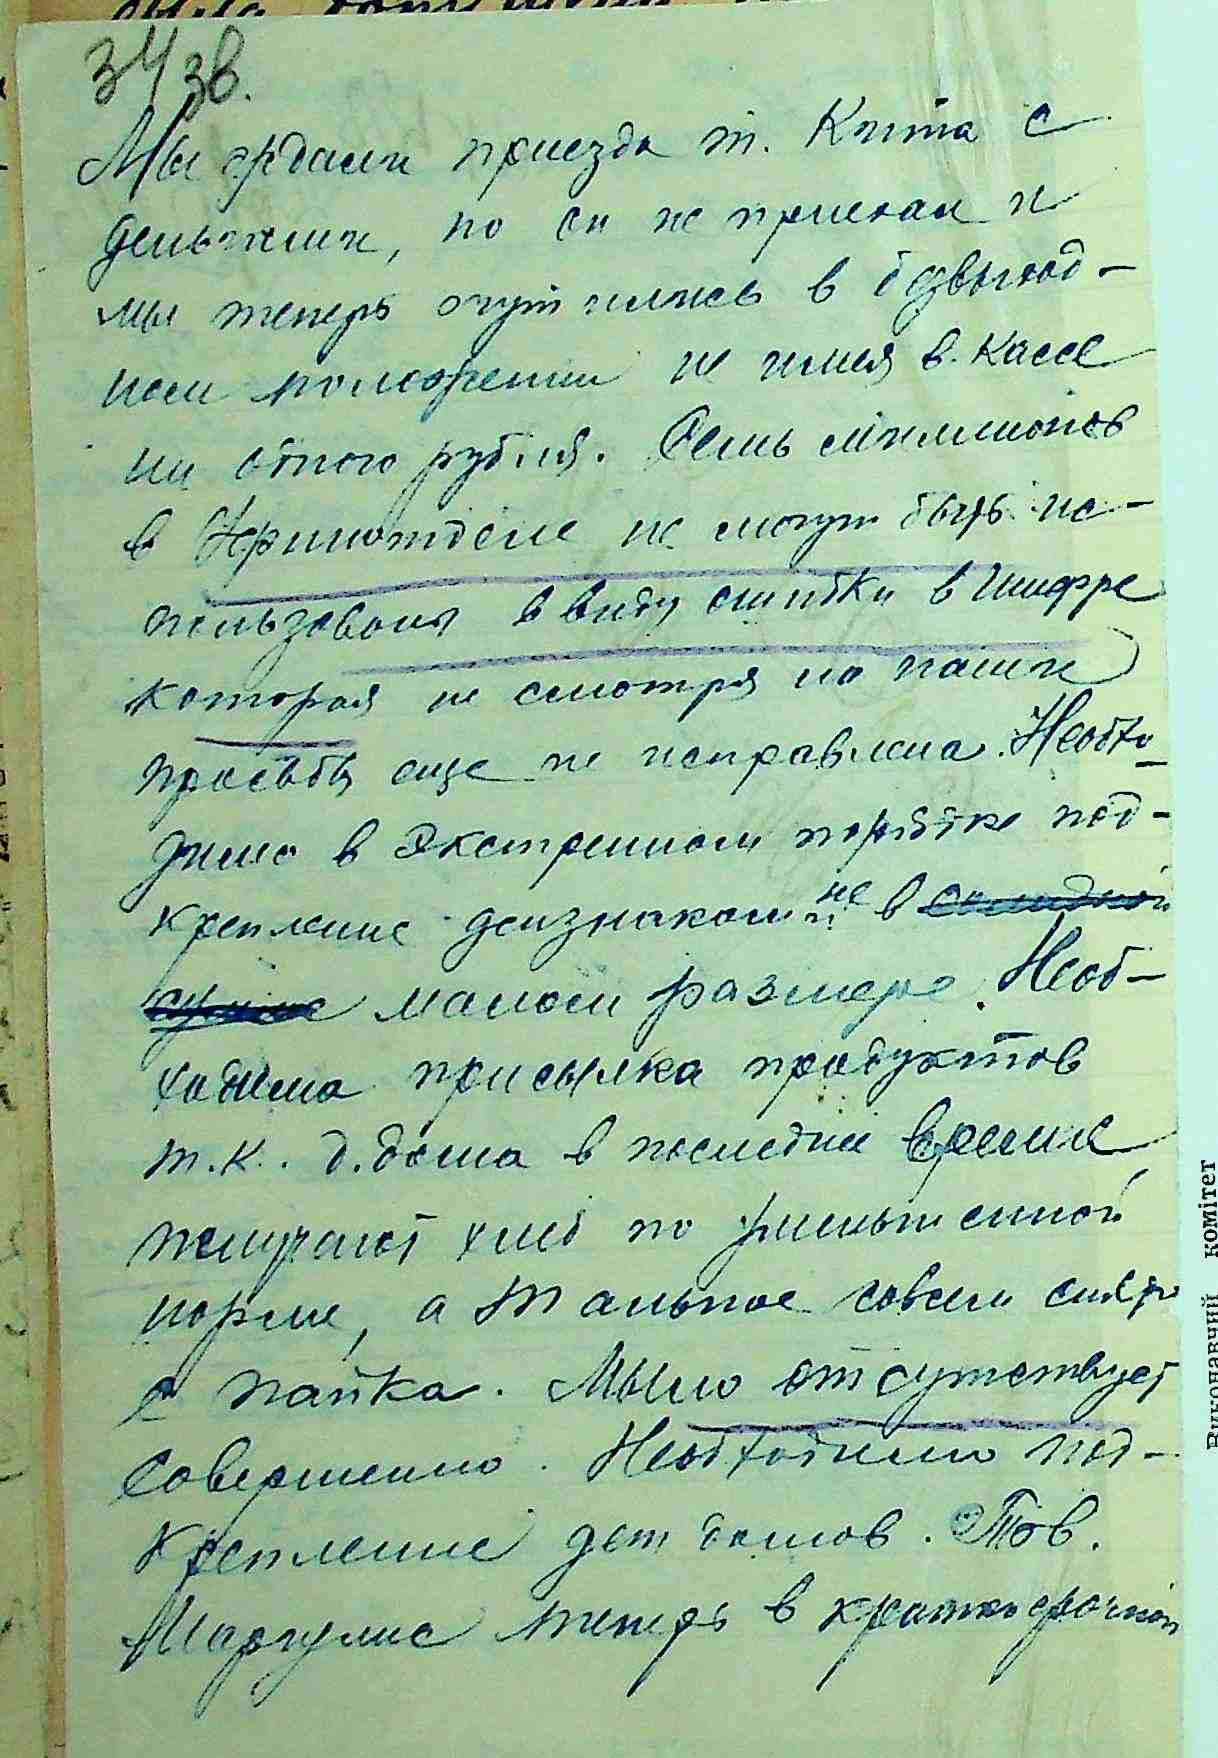 34 зв.
Мы ждали приезда т. Кнта с
деньгами, но он не приехал и
мы теперь очутились в безвыход-
ном положении не имея в. кассе
ни одного рубля. Семь миллионов
в Уфинотделе не могут быть ис-
пользованы в виду ошибки в шифре
которая не смотря на наши
просьбы еще не исправлена. Необхо-
димо в экстренном порядке под-
крепление дензнаками не в
малом размере. Необ-
ходима присылка продуктов
т.к. д.дома в последнее время
получают хлеб по уменьшенной
норме, а Тальное совсем снято
с пайка. Мыло отсутствует
совершенно. Необходимо под-
крепление дет домов. Тов.
Маргулис теперь в краткосрочном
Виконавчий комітет